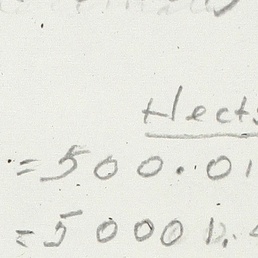 Hects
=500.01
=50001.